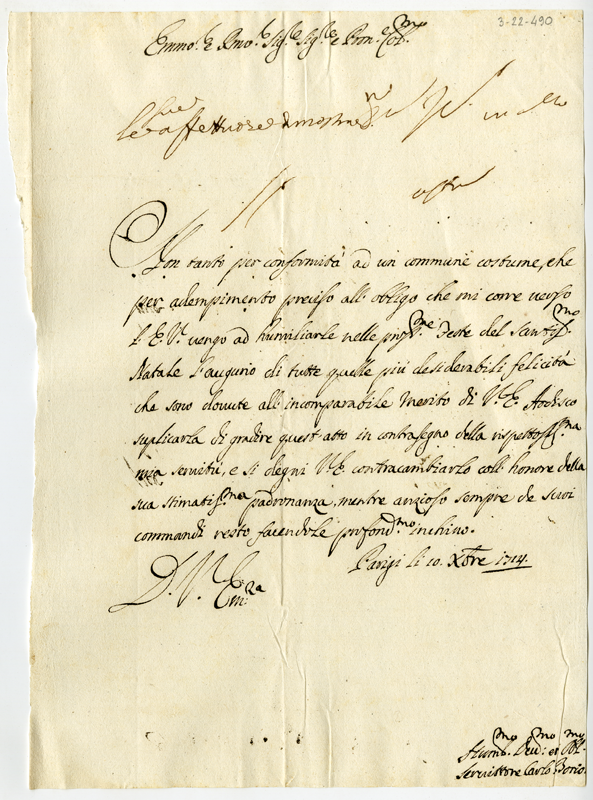 3-22-490
Emmo. e Rmo. Sigre. Sigre. e Pron. Colmo.
affettuose dimostra
Non tanto per conformità ad un commune costume, che
per adempimento preciso all' obligo che mi corre verso
l' E. V. vengo ad humiliarle nelle prosme. Feste del Santismo.
Natale l' augurio di tutte quelle più desiderabili felicità
che sono dovute all' incomparabile Merito di V. E. Ardisco
suplicarla di gradire quest' atto in contrasegno della rispettosissma.
mia servitù, e si degni V. E. contracambiarlo coll' honore della
sua stimatisma. padronanza, mentre anzioso sempre de suoi
commandi resto facendole profondmo. inchino.
Parigi li 10. Xbre 1714.
D. V. Emza.
Humo. Devmo: et Obbmo.
Servittore Carlo